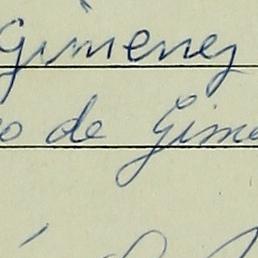 Gimenez
o de Gime